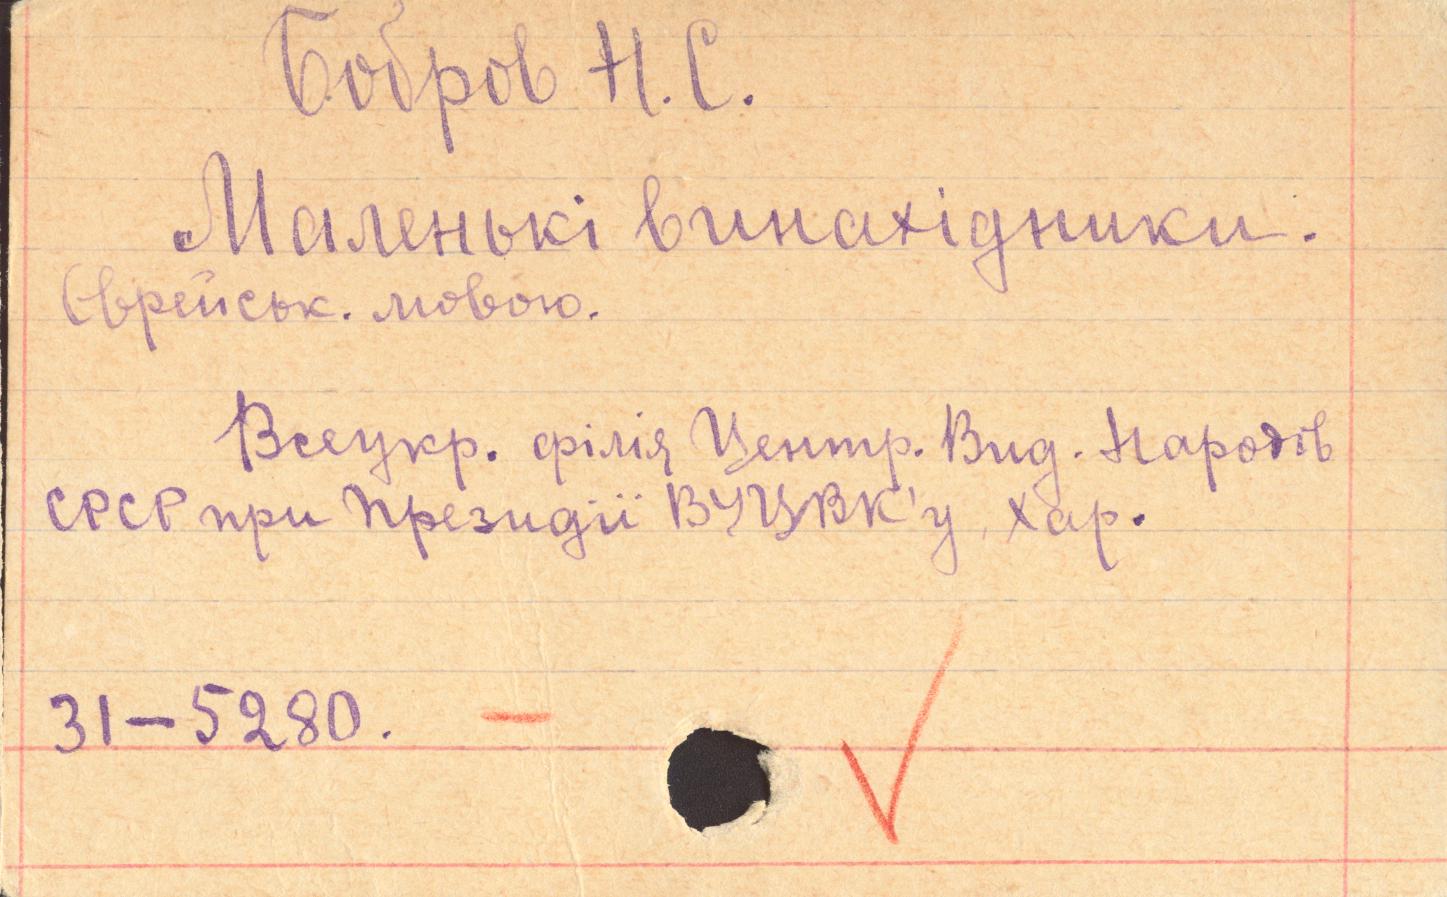 Бобров Н. С.
Маленькі винахідники.
Єврейськ. мовою.
Всеукр. філія Центр. Вид. Народів
СРСР при Президії ВУЦВК'у, Хар.
31–5280. –